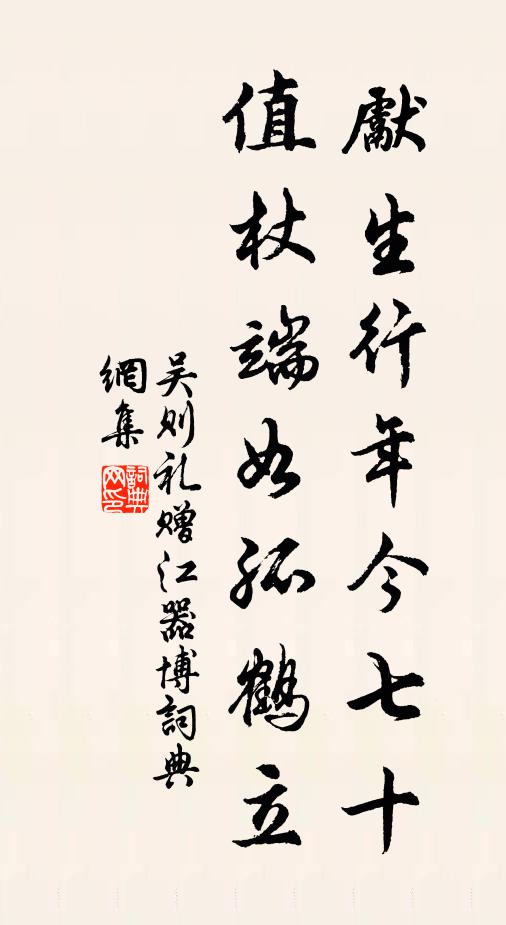 獻生行年今七十
值杖端如孤鶴立
吴则礼赠江器博詞典
網集
詞典
网印